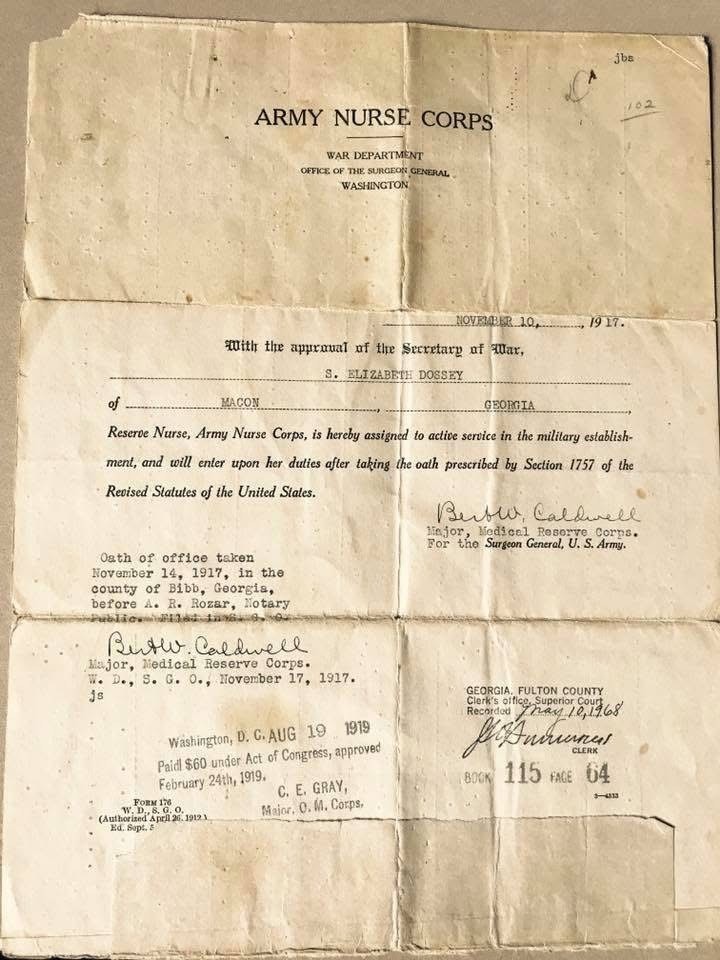 jbs
102
ARMY NURSE CORPS
WAR DEPARTMENT
OFFICE OF THE SURGEON GENERAL
WASHINGTON
NOVEMBER 10, 1917.
With the approval of the Secretary of War,
S. ELIZABETH DOSSEY
of MACON, GEORGIA
Reserve Nurse, Army Nurse Corps, is hereby assigned to active service in the military establish-
ment, and will enter upon her duties after taking the oath prescribed by Section 1757 of the
Revised Statutes of the United States.
Bert W. Caldwell
Major, Medical Reserve Corps.
For the Surgeon General, U. S. Army.
Oath of office taken
November 14, 1917, in the
county of Bibb, Georgia,
before A. R. Rozar, Notary
Public. Filed in S. G. O.
Bert W. Caldwell
Major, Medical Reserve Corps.
W. D., S. G. O., November 17, 1917.
js
GEORGIA, FULTON COUNTY
Clerk's office, Superior Court
Recorded May 10, 1968
CLERK
BOOK 115 PAGE 64
Washington, D. C. AUG 19 1919
Paid $60 under Act of Congress, approved
February 24th, 1919.
C. E. GRAY,
Major, Q. M. Corps.
FORM 176
W. D., S. G. O.
(Authorized April 26, 1912.)
Ed. Sept. 5